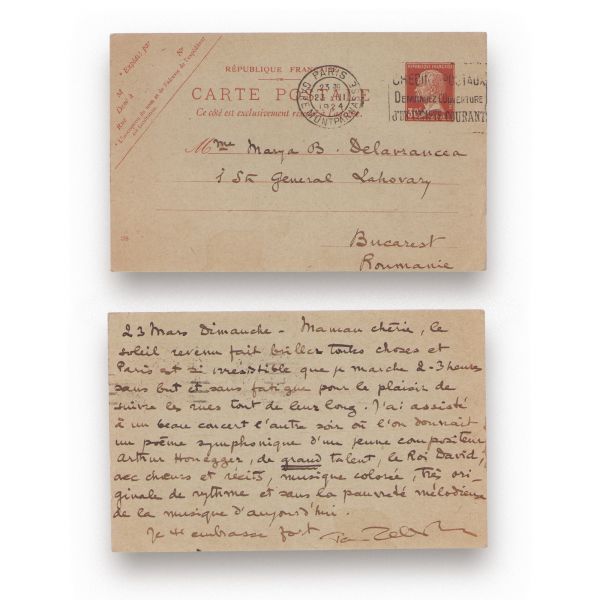 * Expédié par
N°
M
Demt à
Rue
RÉPUBLIQUE FRAN
CARTE POSTALE
Ce côté est exclusivement
PARIS
23
1924
MONTPARNASSE
RÉPUBLIQUE FRANÇAISE
CHÈQUES POSTAUX
DEMANDEZ L'OUVERTURE
D'UN COMPTE COURANT
Mme Marya B. Delavrancea
1 St. General Lahovary
Bucarest
Roumanie
23 Mars Dimanche – Maman chérie, le
soleil revenu fait briller toutes choses et
Paris est si irrésistible que je marche 2-3 heures
sans but et sans fatigue pour le plaisir de
suivre les rues tout de leur long. J'ai assisté
à un beau concert l'autre soir où l'on donnait
un poème symphonique d'un jeune compositeur
Arthur Honegger, de grand talent, le Roi David,
avec chœurs et récits, musique colorée, très ori-
ginale de rythme et sans la pauvreté mélodieuse
de la musique d'aujourd'hui.
Je t'embrasse fort